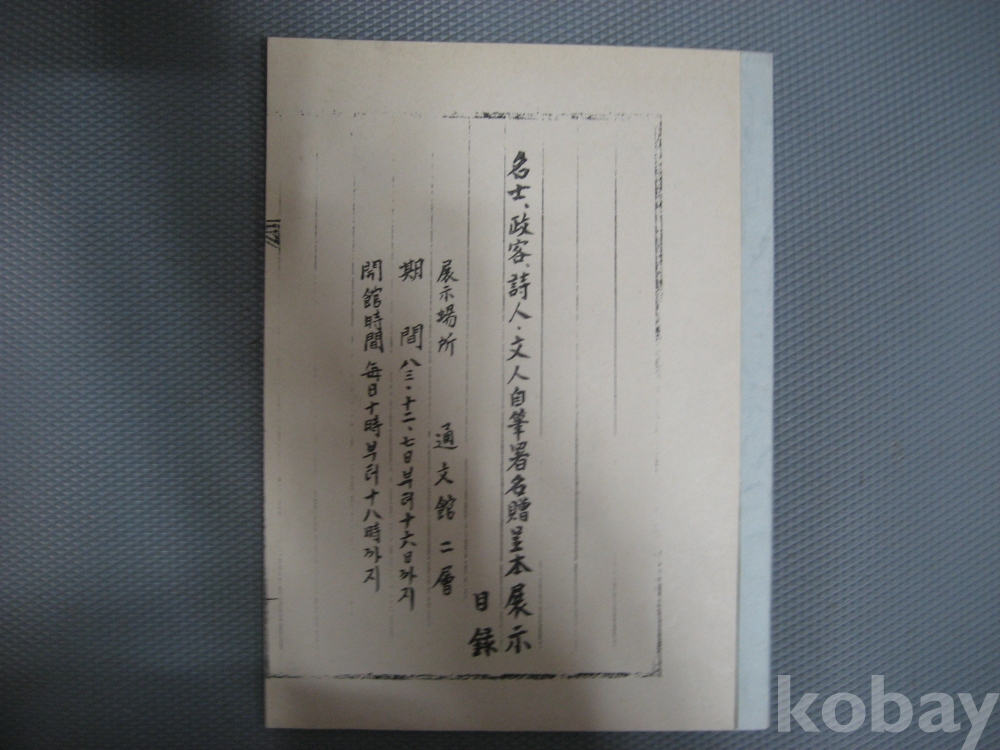 名士、政客、詩人·文人自筆署名贈呈本展示
目録
展示場所 通文館 二層
期間 八三·十二、七日부터十六日까지
開館時間 每日十時부터十八時까지
kobay